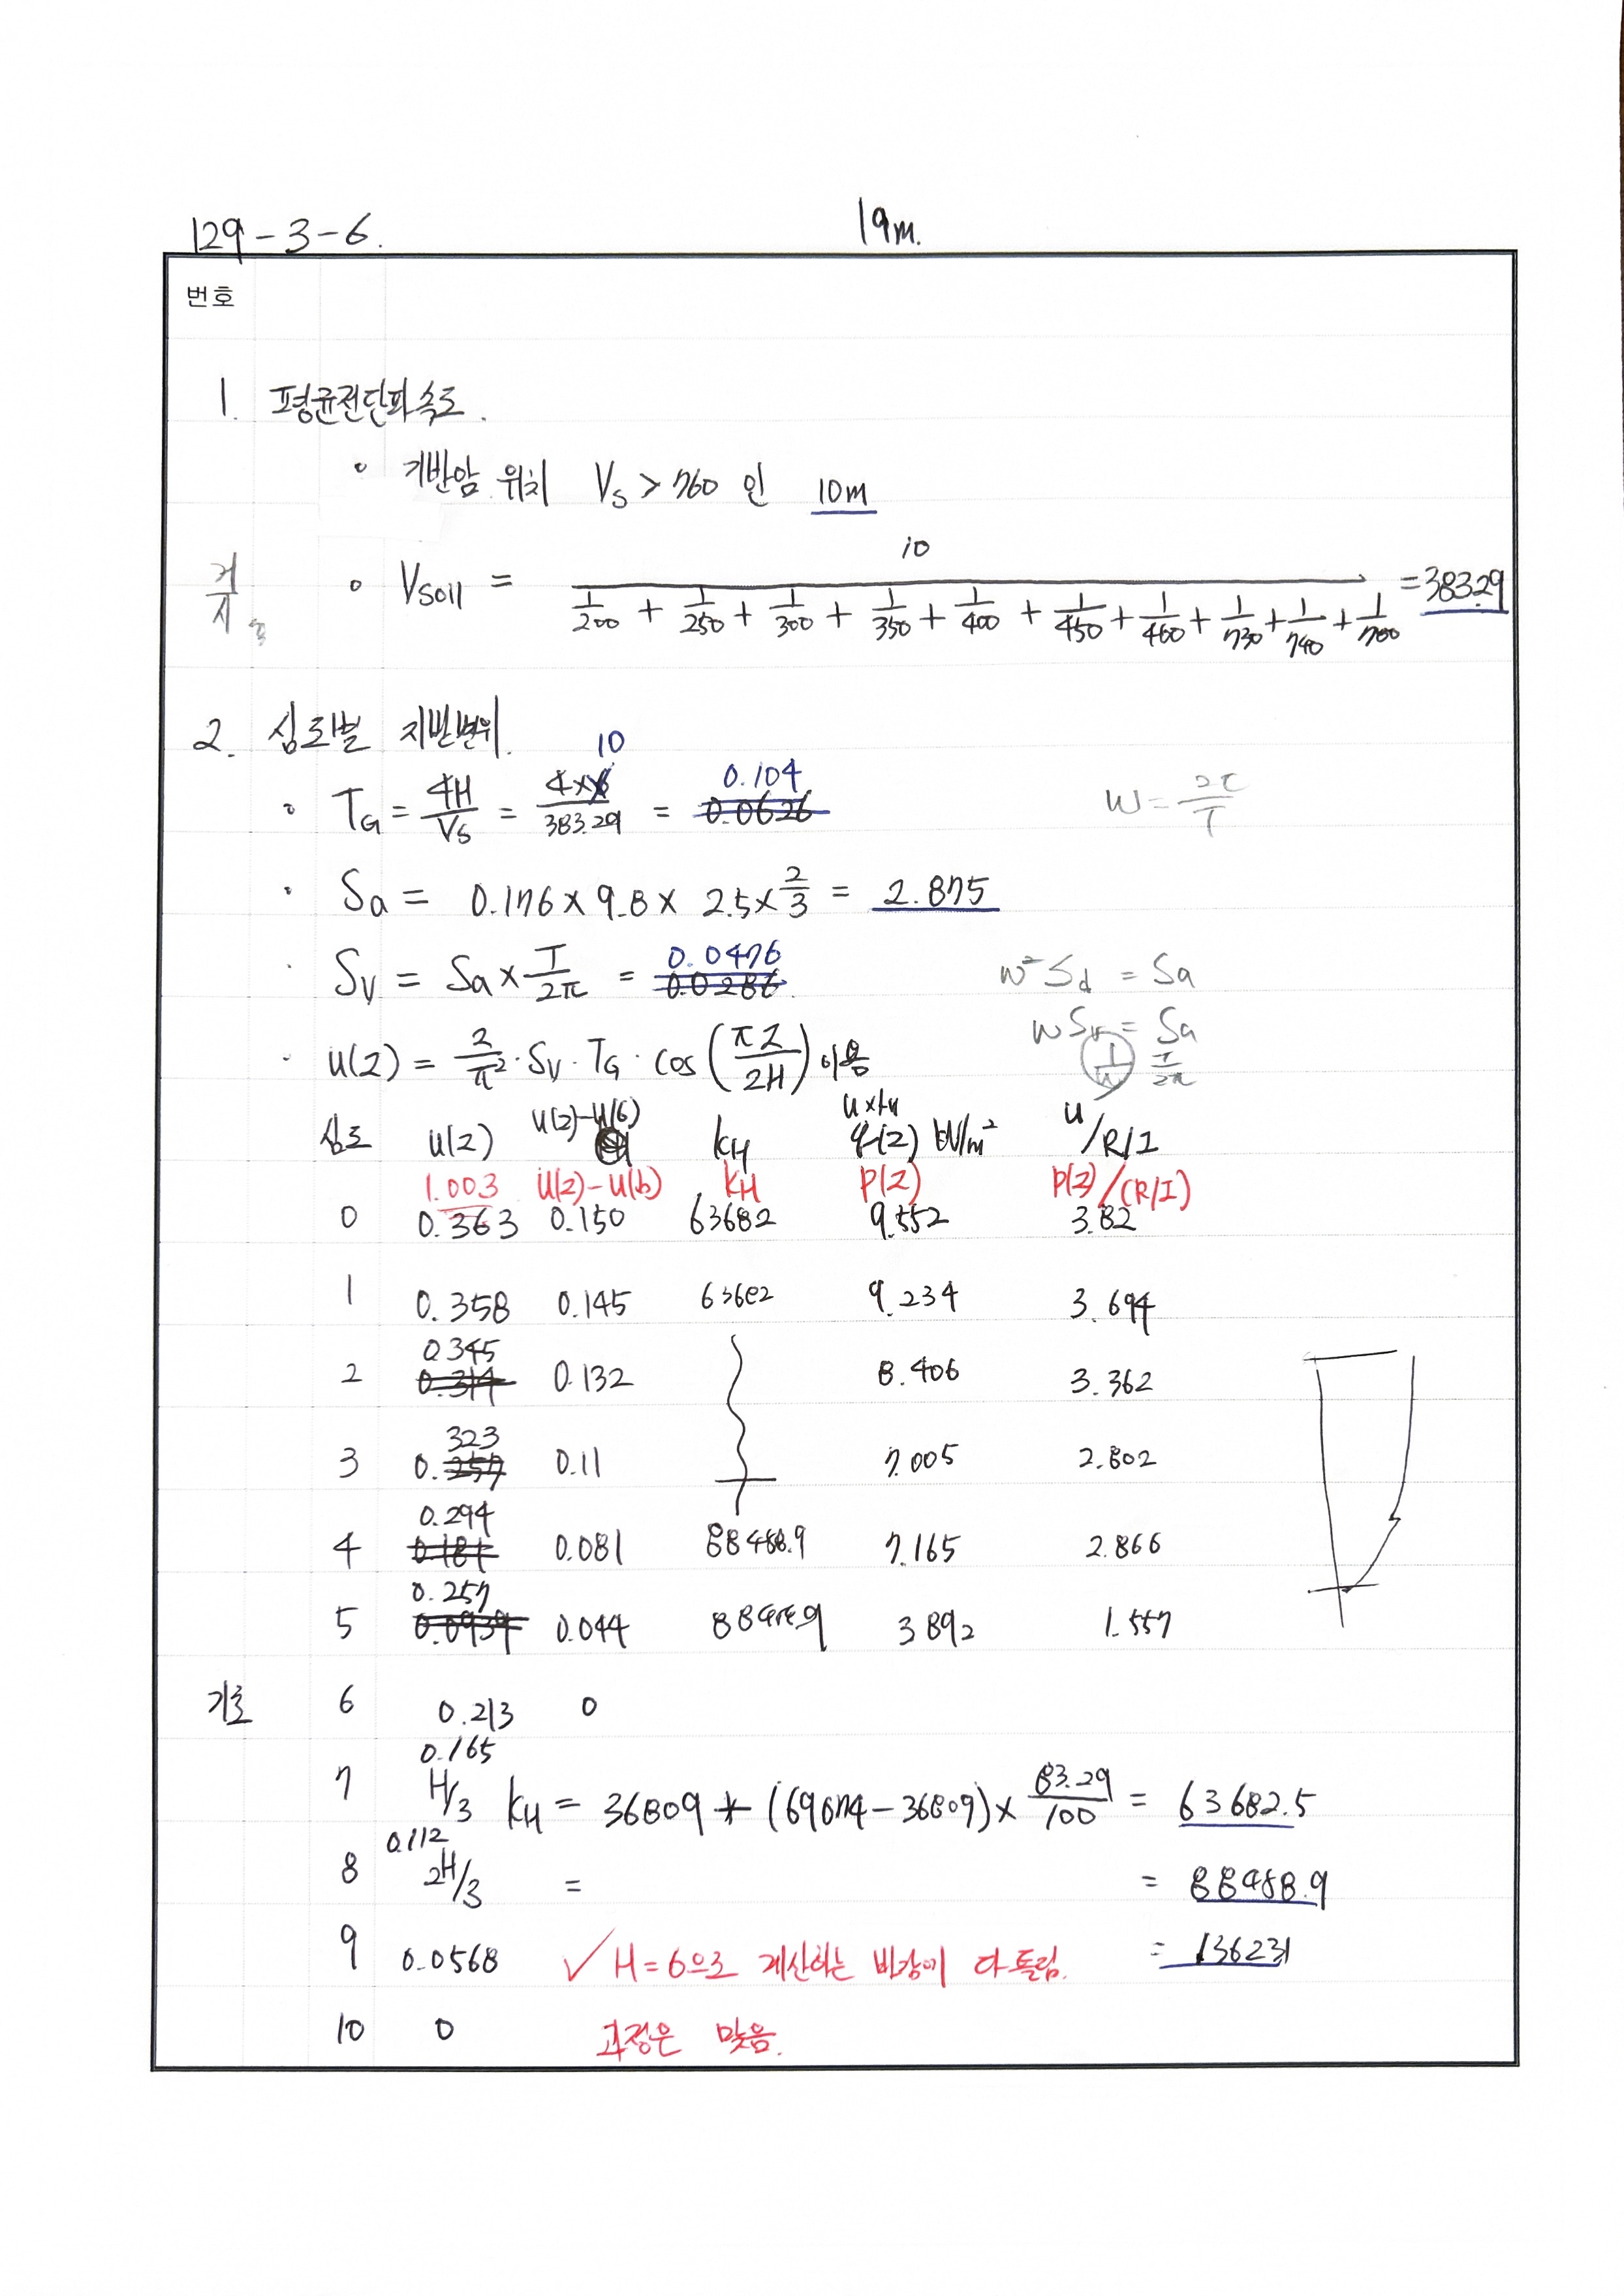 129-3-6.
19m.
번호
1. 평균전단파속도.
◦ 기반암 위치 Vs > 760 인 10m
◦ Vsoil = 10 / (1/200 + 1/250 + 1/300 + 1/350 + 1/400 + 1/450 + 1/460 + 1/730 + 1/740 + 1/700) = 383.29
거/시
2. 심도별 지반변위.
◦ TG = 4H/Vs = 4×10/383.29 = 0.0626 0.104
W = 2π/T
· Sa = 0.176 × 9.8 × 2.5 × 2/3 = 2.875
· Sv = Sa × T/2π = 0.0286 0.0476
w² Sd = Sa
w Sv = Sa
1/w T/2π
· u(z) = 2/π² · Sv · TG · cos(πz/2H) 이용
심도 u(z) u(z)-u(6) kH u×kH q(z) kN/m² u/R/I
1.003 u(z)-u(b) kH p(z) p(z)/(R/I)
0 0.363 0.150 63682 9.552 3.82
1 0.358 0.145 63682 9.234 3.694
2 0.314 0.345 0.132 8.406 3.362
3 0.257 323 0.11 7.005 2.802
4 0.181 0.294 0.081 88488.9 7.165 2.866
5 0.0939 0.257 0.044 88488.9 3892 1.557
기초 6 0.213 0
7 0.165 H/3 kH = 36809 + (69074-36809) × 83.29/100 = 63682.5
8 0.112 2H/3 = = 88488.9
9 0.0568 ✓ H=6으로 계산하는 바람에 다 틀림. = 136231
10 0 과정은 맞음.